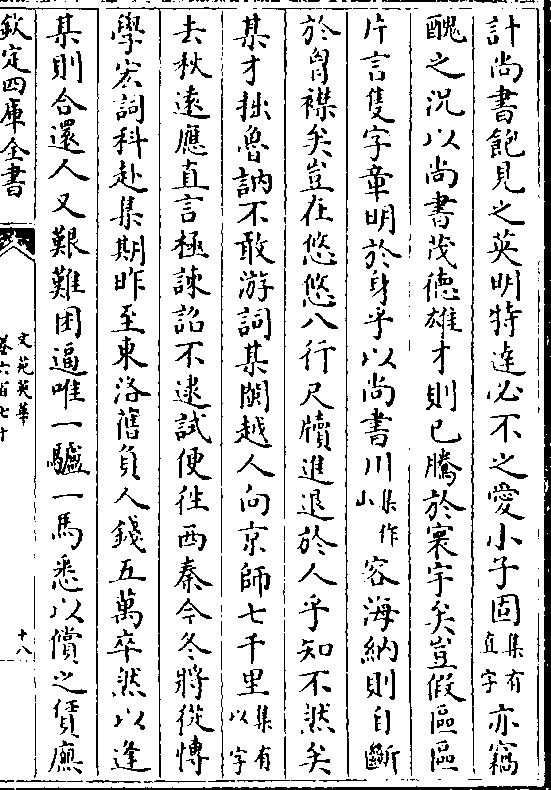 計尚書飽見之英明特達必不之愛小子固集有直字亦竊
醜之況以尚書茂德雄才則已騰於寰宇矣豈假區區
片言隻字章明於身乎以尚書川集作山容海納則自斷
於胷襟矣豈在悠悠八行尺牘進退於人乎知不然矣
某才拙魯訥不敢游詞某閩越人向京師七千里集有以字
去秋遠應直言極諫詔不逮試便往西秦今冬將從博
學宏詞科赴集期昨至東洛舊負人錢五萬卒然以逢
某則合還人又艱難困逼唯一驢一馬悉以償之賃廡
欽定四庫全書
文苑英華
卷六百七十
十八